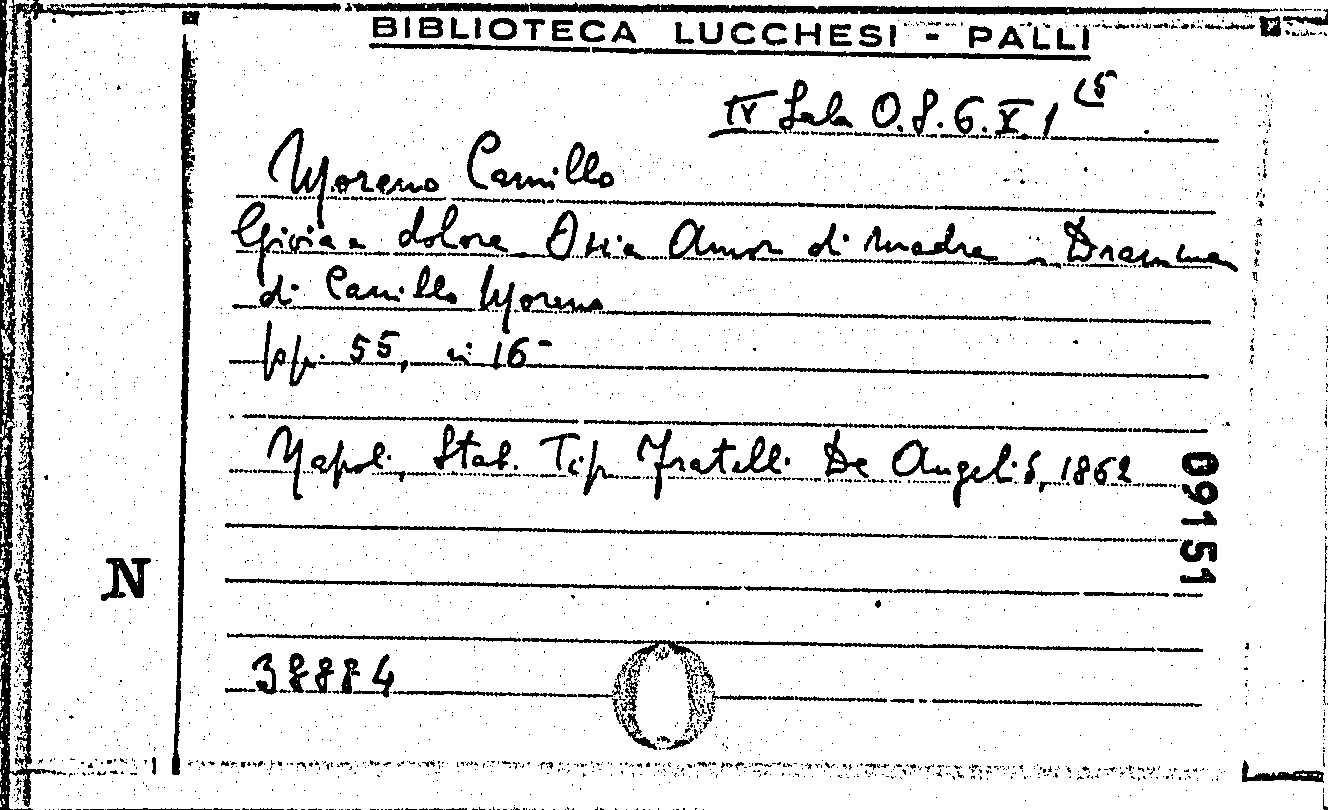 BIBLIOTECA LUCCHESI - PALLI
IV Sala O.S.6.X.1 (5
Moreno Camillo
Gioia e dolore Ossia Amor di madre - Dramma
di Camillo Moreno
pp. 55, in 16-
Napoli, Stab. Tip. Fratelli De Angelis, 1862
09151
N
38884